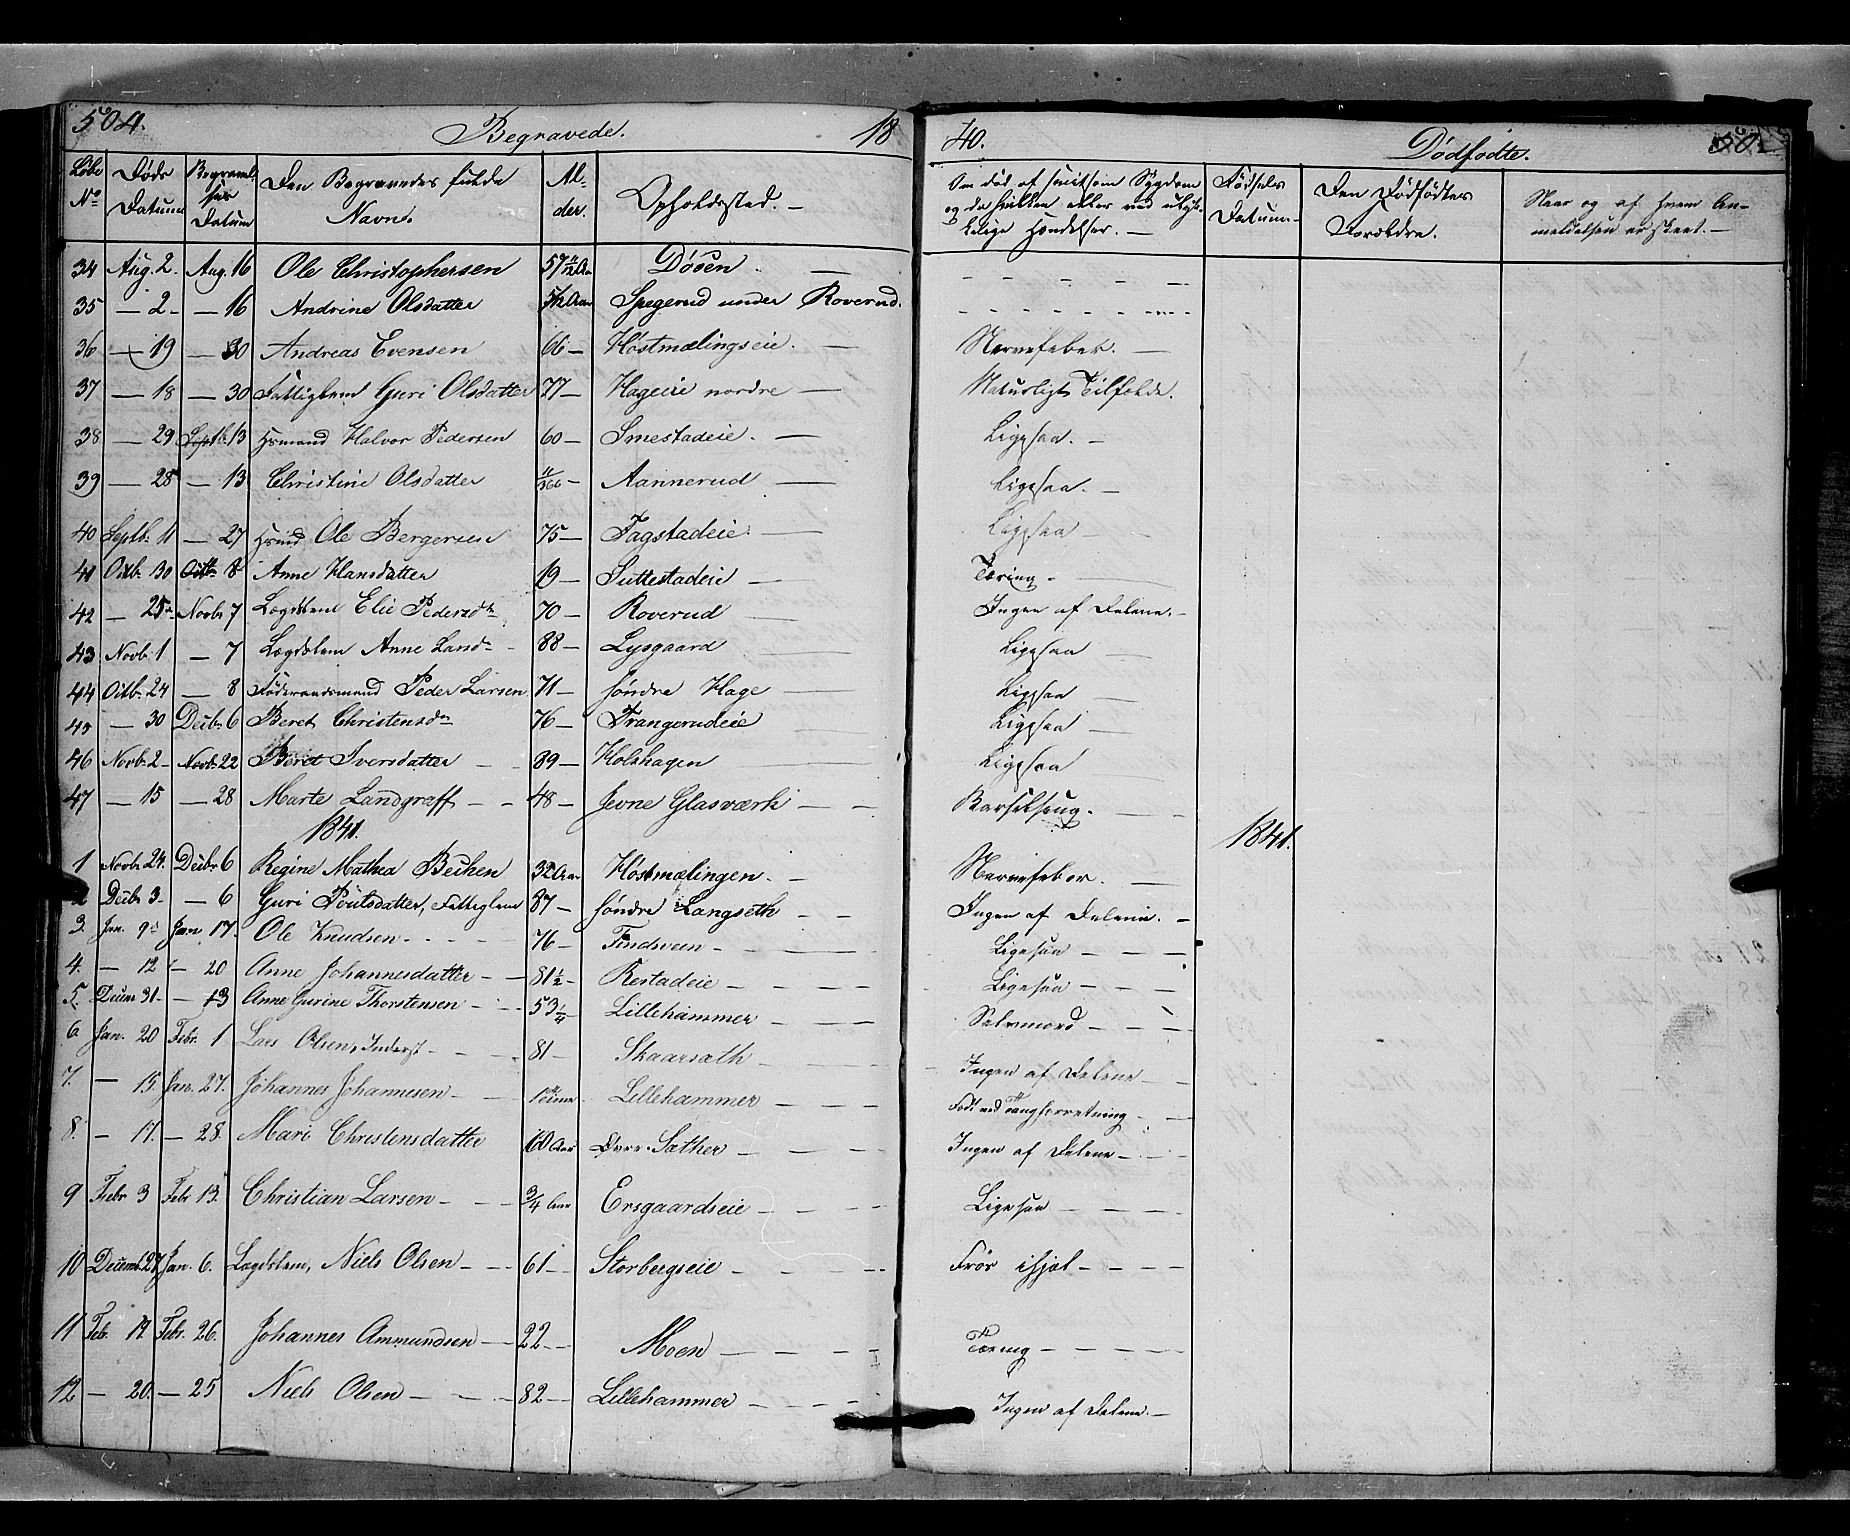 504. Begravede. 18 40. Dødfødte.
Løbe No Døds Datum Begravelses Datum Den Begravedes fulde Navn. Alder. Opholdssted. Om død af smitsom Sygdom og da hvilken eller ved ulykkelige Hændelser. Fødsels Datum Den Dødfødtes Forældre. Naar og af hvem Anmeldelsen er skeet.
34 Aug. 2. Aug. 16 Ole Christophersen Døsen
35 — 2 — 16 Andrine Olsdatter Spegerud under Roverud.
36 — 19 — 30 Andreas Evensen 66 — Høstmælingseie. Nervefeber.
37 — 18 — 30 Fattiglem Guri Olsdatter 77 — Hageeie nordre Naturligt Tilfælde.
38 — 29 Septb. 13 Hsmand Halvor Pedersen 60 — Smestadeie. Ligesaa.
39 — 28 — 13 Christine Olsdatter 11/366 — Aannerud Ligesaa.
40 Septb. 11 — 27 Hsmd Ole Bergersen 75 — Fagstadeie Ligesaa
41 Octb. 30 Octb. 8 Anne Hansdatter 19 — Suttestadeie Tæring
42 — 25 Novb. 7 Lægdslem Elie Pedersdr 70 — Roverud Ingen af Delene.
43 Novb. 1 — 7 Lægdslem Anne Larsdr 88 — Lysgaard Ligesaa
44 Octb. 24 — 8 Føderaadsmand Peder Larsen 71 — søndre Hage Ligesaa
45 — 30 Decbr. 6 Beret Christensdr 76 — Trangerudeie Ligesaa
46 Novb. 2 Novb. 22 Beret Iversdatter 89 — Holshagen Ligesaa
47 — 15 — 28 Marte Landgraff 48 — Jevne Glasværk Barselseng.
1841. 1841.
1 Novb. 24. Decbr. 6 Regine Mathea Beichen 32 Aar Høstmælingen. Nervefeber.
2 Decbr 3 — 6 Guri Poulsdatter, Fattiglem 87 — søndre Langseth Ingen af Delene.
3. Jan. 9 Jan 17. Ole Knudsen 76 — Findsveen Ligesaa
4. — 12 — 20 Anne Johannesdatter 81 1/2 Restadeie Ligesaa
5. Decem 31 — 13 Anne Gurine Thorstensen 53 1/4 Lillehammer Selvmord
6. Jan. 20 Febr. 1 Lars Olsen, Inderst 81 — Skaarsath Ingen af Delene
7. — 15. Jan. 27. Johannes Johannesen Lillehammer Født ved Tangforretning
8. — 17. — 28. Mari Christensdatter 60 Aar Øvre Sæther Ingen af Delene
9 Febr 3 Febr 13. Christian Larsen 3/4 Aar Ersgaardseie Ligesaa
10 Decemb. 27 Jan. 6. Lægdslem, Niels Olsen 61 — Storbergseie Frøs ihjel
11 Feb. 19 Febr. 26. Johannes Ammundsen 22 — Moen Tæring
12 — 20. — 25 Niels Olsen 82 — Lillehammer Ingen af Delene